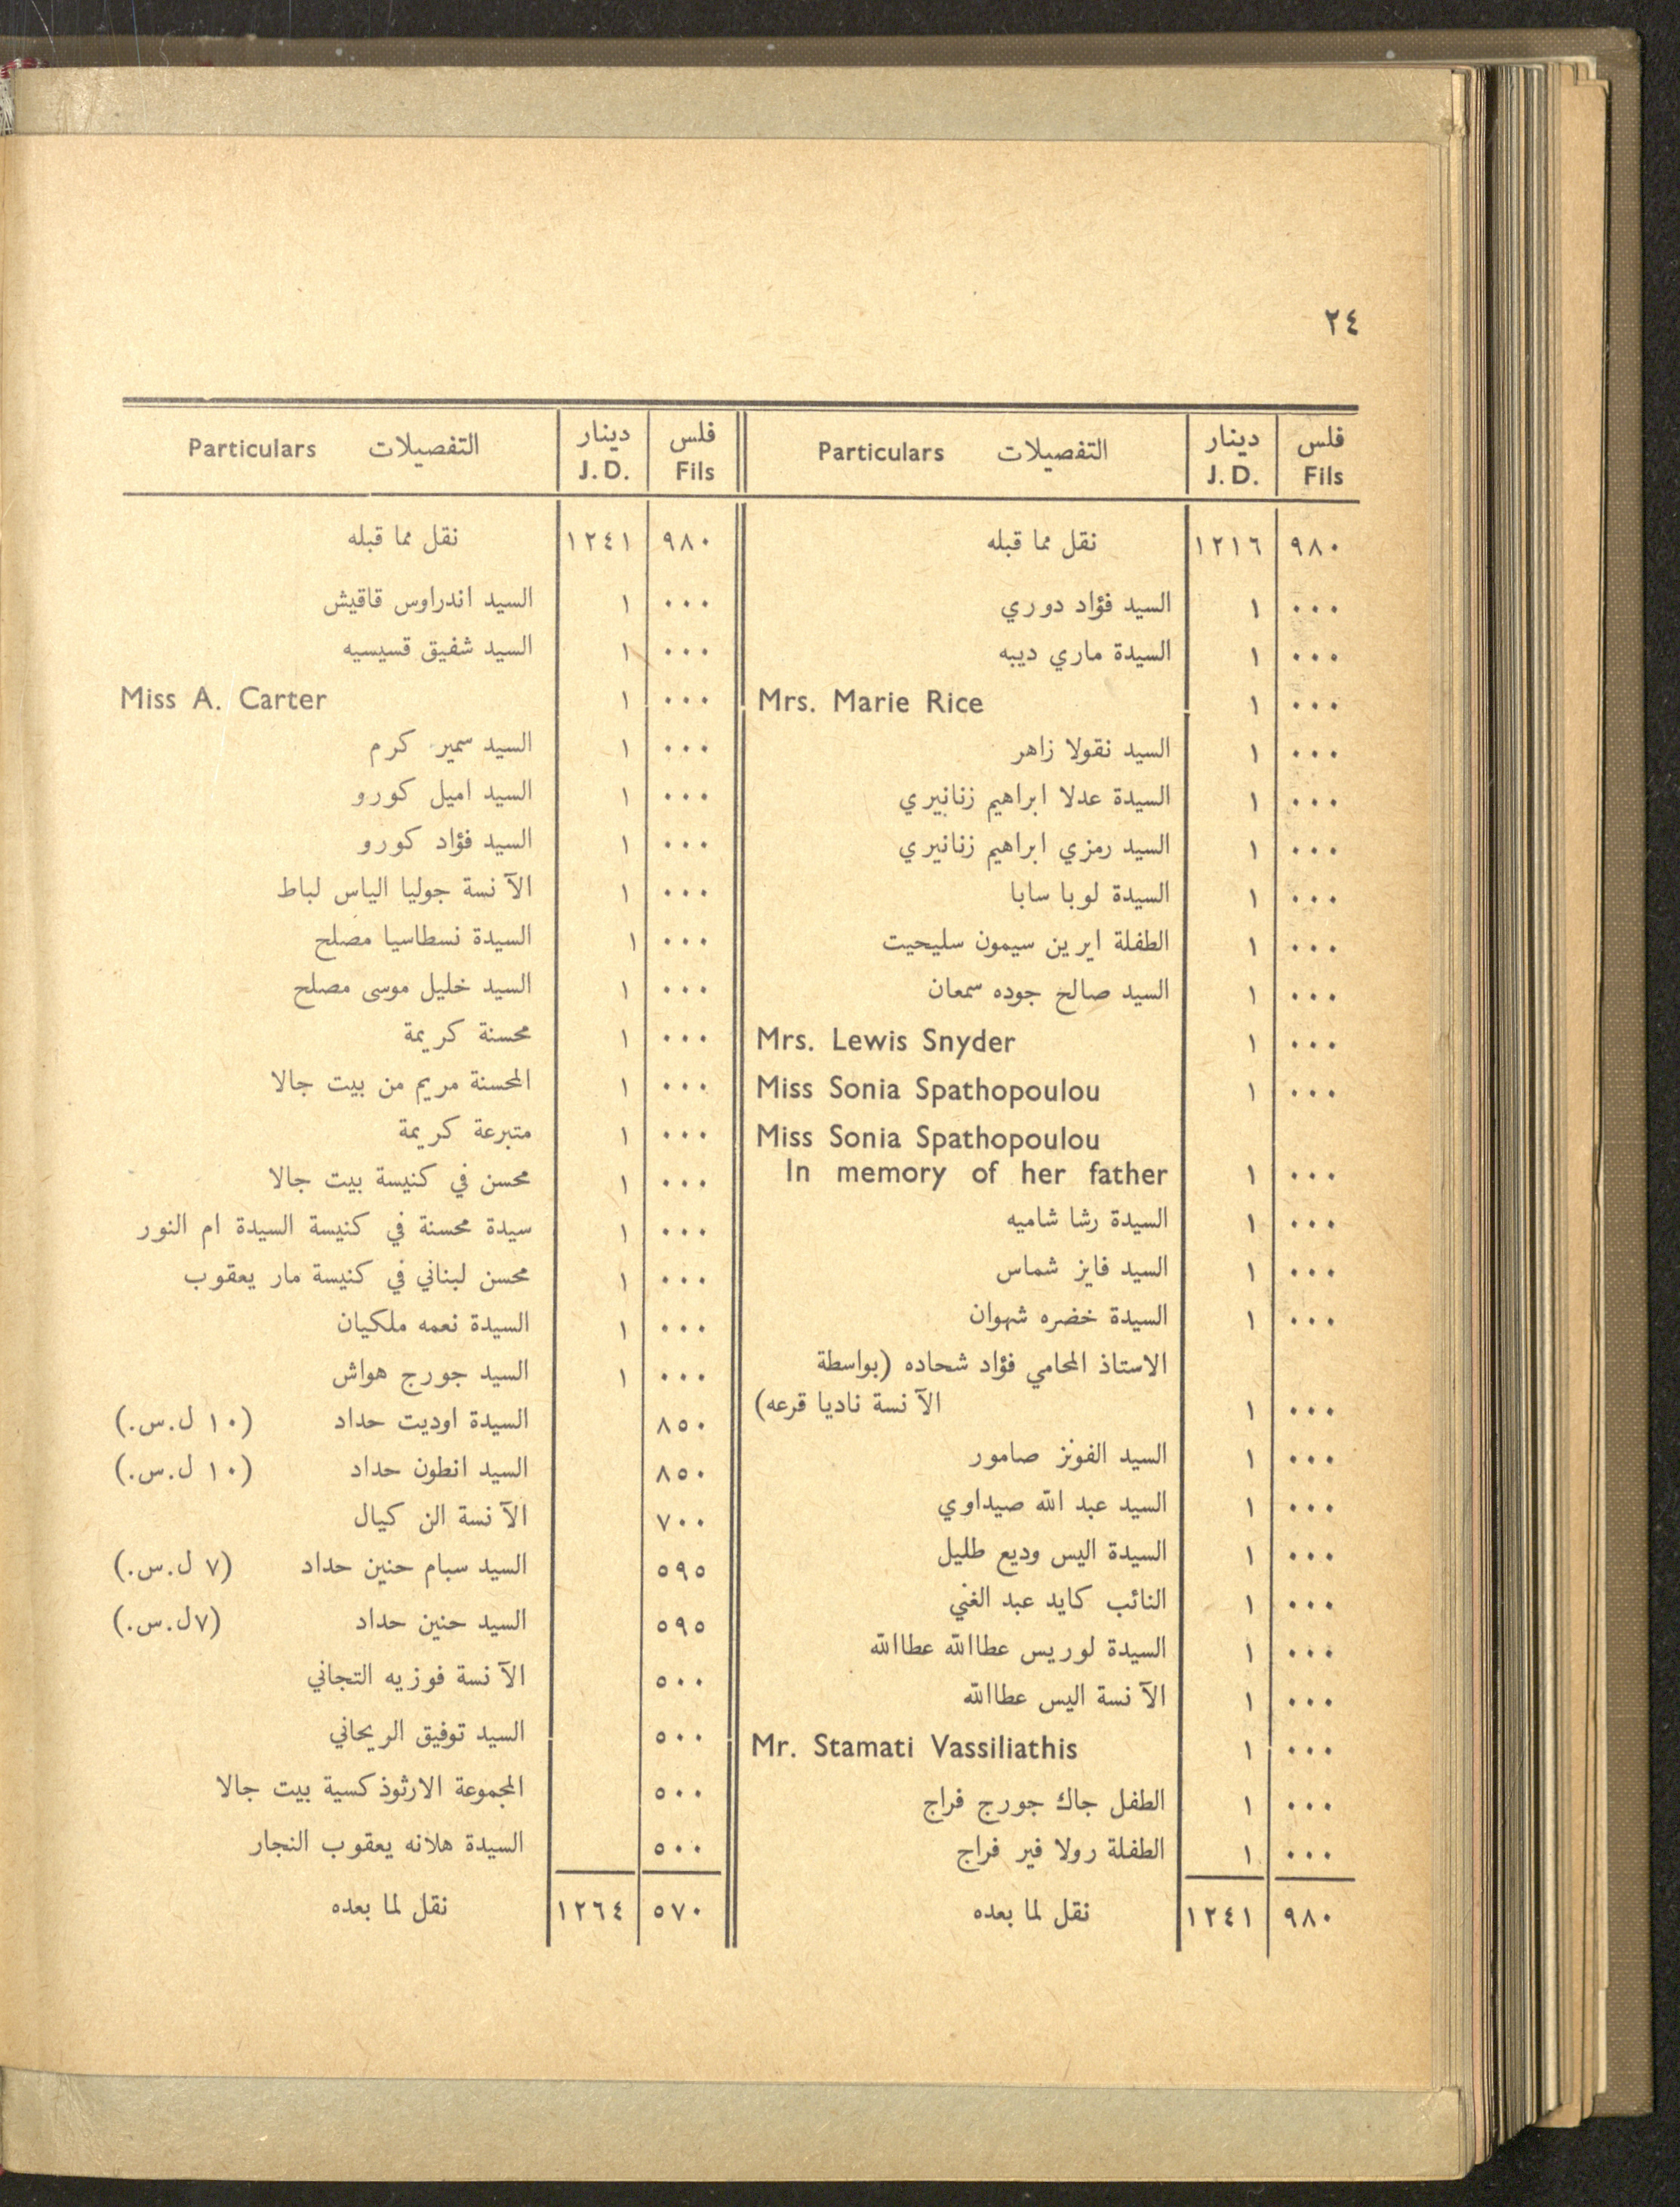 ٢٤
فلس دينار التفصيلات Particulars
Fils J.D.
٩٨٠ ١٢١٦ نقل مما قبله
٠٠٠ ١ السيد فؤاد دوري
٠٠٠ ١ السيدة ماري ديبه
٠٠٠ ١ Mrs. Marie Rice
٠٠٠ ١ السيد نقولا زاهر
٠٠٠ ١ السيدة عدلا ابراهيم زنانيري
٠٠٠ ١ السيد رمزي ابراهيم زنانيري
٠٠٠ ١ السيدة لوبا سابا
٠٠٠ ١ الطفلة ايرين سيمون سليحيت
٠٠٠ ١ السيد صالح جوده سمعان
٠٠٠ ١ Mrs. Lewis Snyder
٠٠٠ ١ Miss Sonia Spathopoulou
Miss Sonia Spathopoulou
٠٠٠ ١ In memory of her father
٠٠٠ ١ السيدة رشا شاميه
٠٠٠ ١ السيد فايز شماس
٠٠٠ ١ السيدة خضره شهوان
الاستاذ المحامي فؤاد شحاده (بواسطة
٠٠٠ ١ الآنسة ناديا قرعه)
٠٠٠ ١ السيد الفونز صامور
٠٠٠ ١ السيد عبد الله صيداوي
٠٠٠ ١ السيدة اليس وديع طليل
٠٠٠ ١ النائب كايد عبد الغني
٠٠٠ ١ السيدة لوريس عطاالله عطاالله
٠٠٠ ١ الآنسة اليس عطاالله
٠٠٠ ١ Mr. Stamati Vassiliathis
٠٠٠ ١ الطفل جاك جورج فراج
٠٠٠ ١ الطفلة رولا فير فراج
٩٨٠ ١٢٤١ نقل لما بعده
فلس دينار التفصيلات Particulars
Fils J.D.
٩٨٠ ١٢٤١ نقل مما قبله
٠٠٠ ١ السيد اندراوس قاقيش
٠٠٠ ١ السيد شفيق قسيسيه
٠٠٠ ١ Miss A. Carter
٠٠٠ ١ السيد سمير كرم
٠٠٠ ١ السيد اميل كورو
٠٠٠ ١ السيد فؤاد كورو
٠٠٠ ١ الآنسة جوليا الياس لباط
٠٠٠ ١ السيدة نسطاسيا مصلح
٠٠٠ ١ السيد خليل موسى مصلح
٠٠٠ ١ محسنة كريمة
٠٠٠ ١ المحسنة مريم من بيت جالا
٠٠٠ ١ متبرعة كريمة
٠٠٠ ١ محسن في كنيسة بيت جالا
٠٠٠ ١ سيدة محسنة في كنيسة السيدة ام النور
٠٠٠ ١ محسن لبناني في كنيسة مار يعقوب
٠٠٠ ١ السيدة نعمه ملكيان
٠٠٠ ١ السيد جورج هواش
٨٥٠ السيدة اوديت حداد (١٠ ل.س.)
٨٥٠ السيد انطون حداد (١٠ ل.س.)
٧٠٠ الآنسة الن كيال
٥٩٥ السيد سبام حنين حداد (٧ ل.س.)
٥٩٥ السيد حنين حداد (٧ل.س.)
٥٠٠ الآنسة فوزيه التجاني
٥٠٠ السيد توفيق الريحاني
٥٠٠ المجموعة الارثوذكسية بيت جالا
٥٠٠ السيدة هلانه يعقوب النجار
٥٧٠ ١٢٦٤ نقل لما بعده